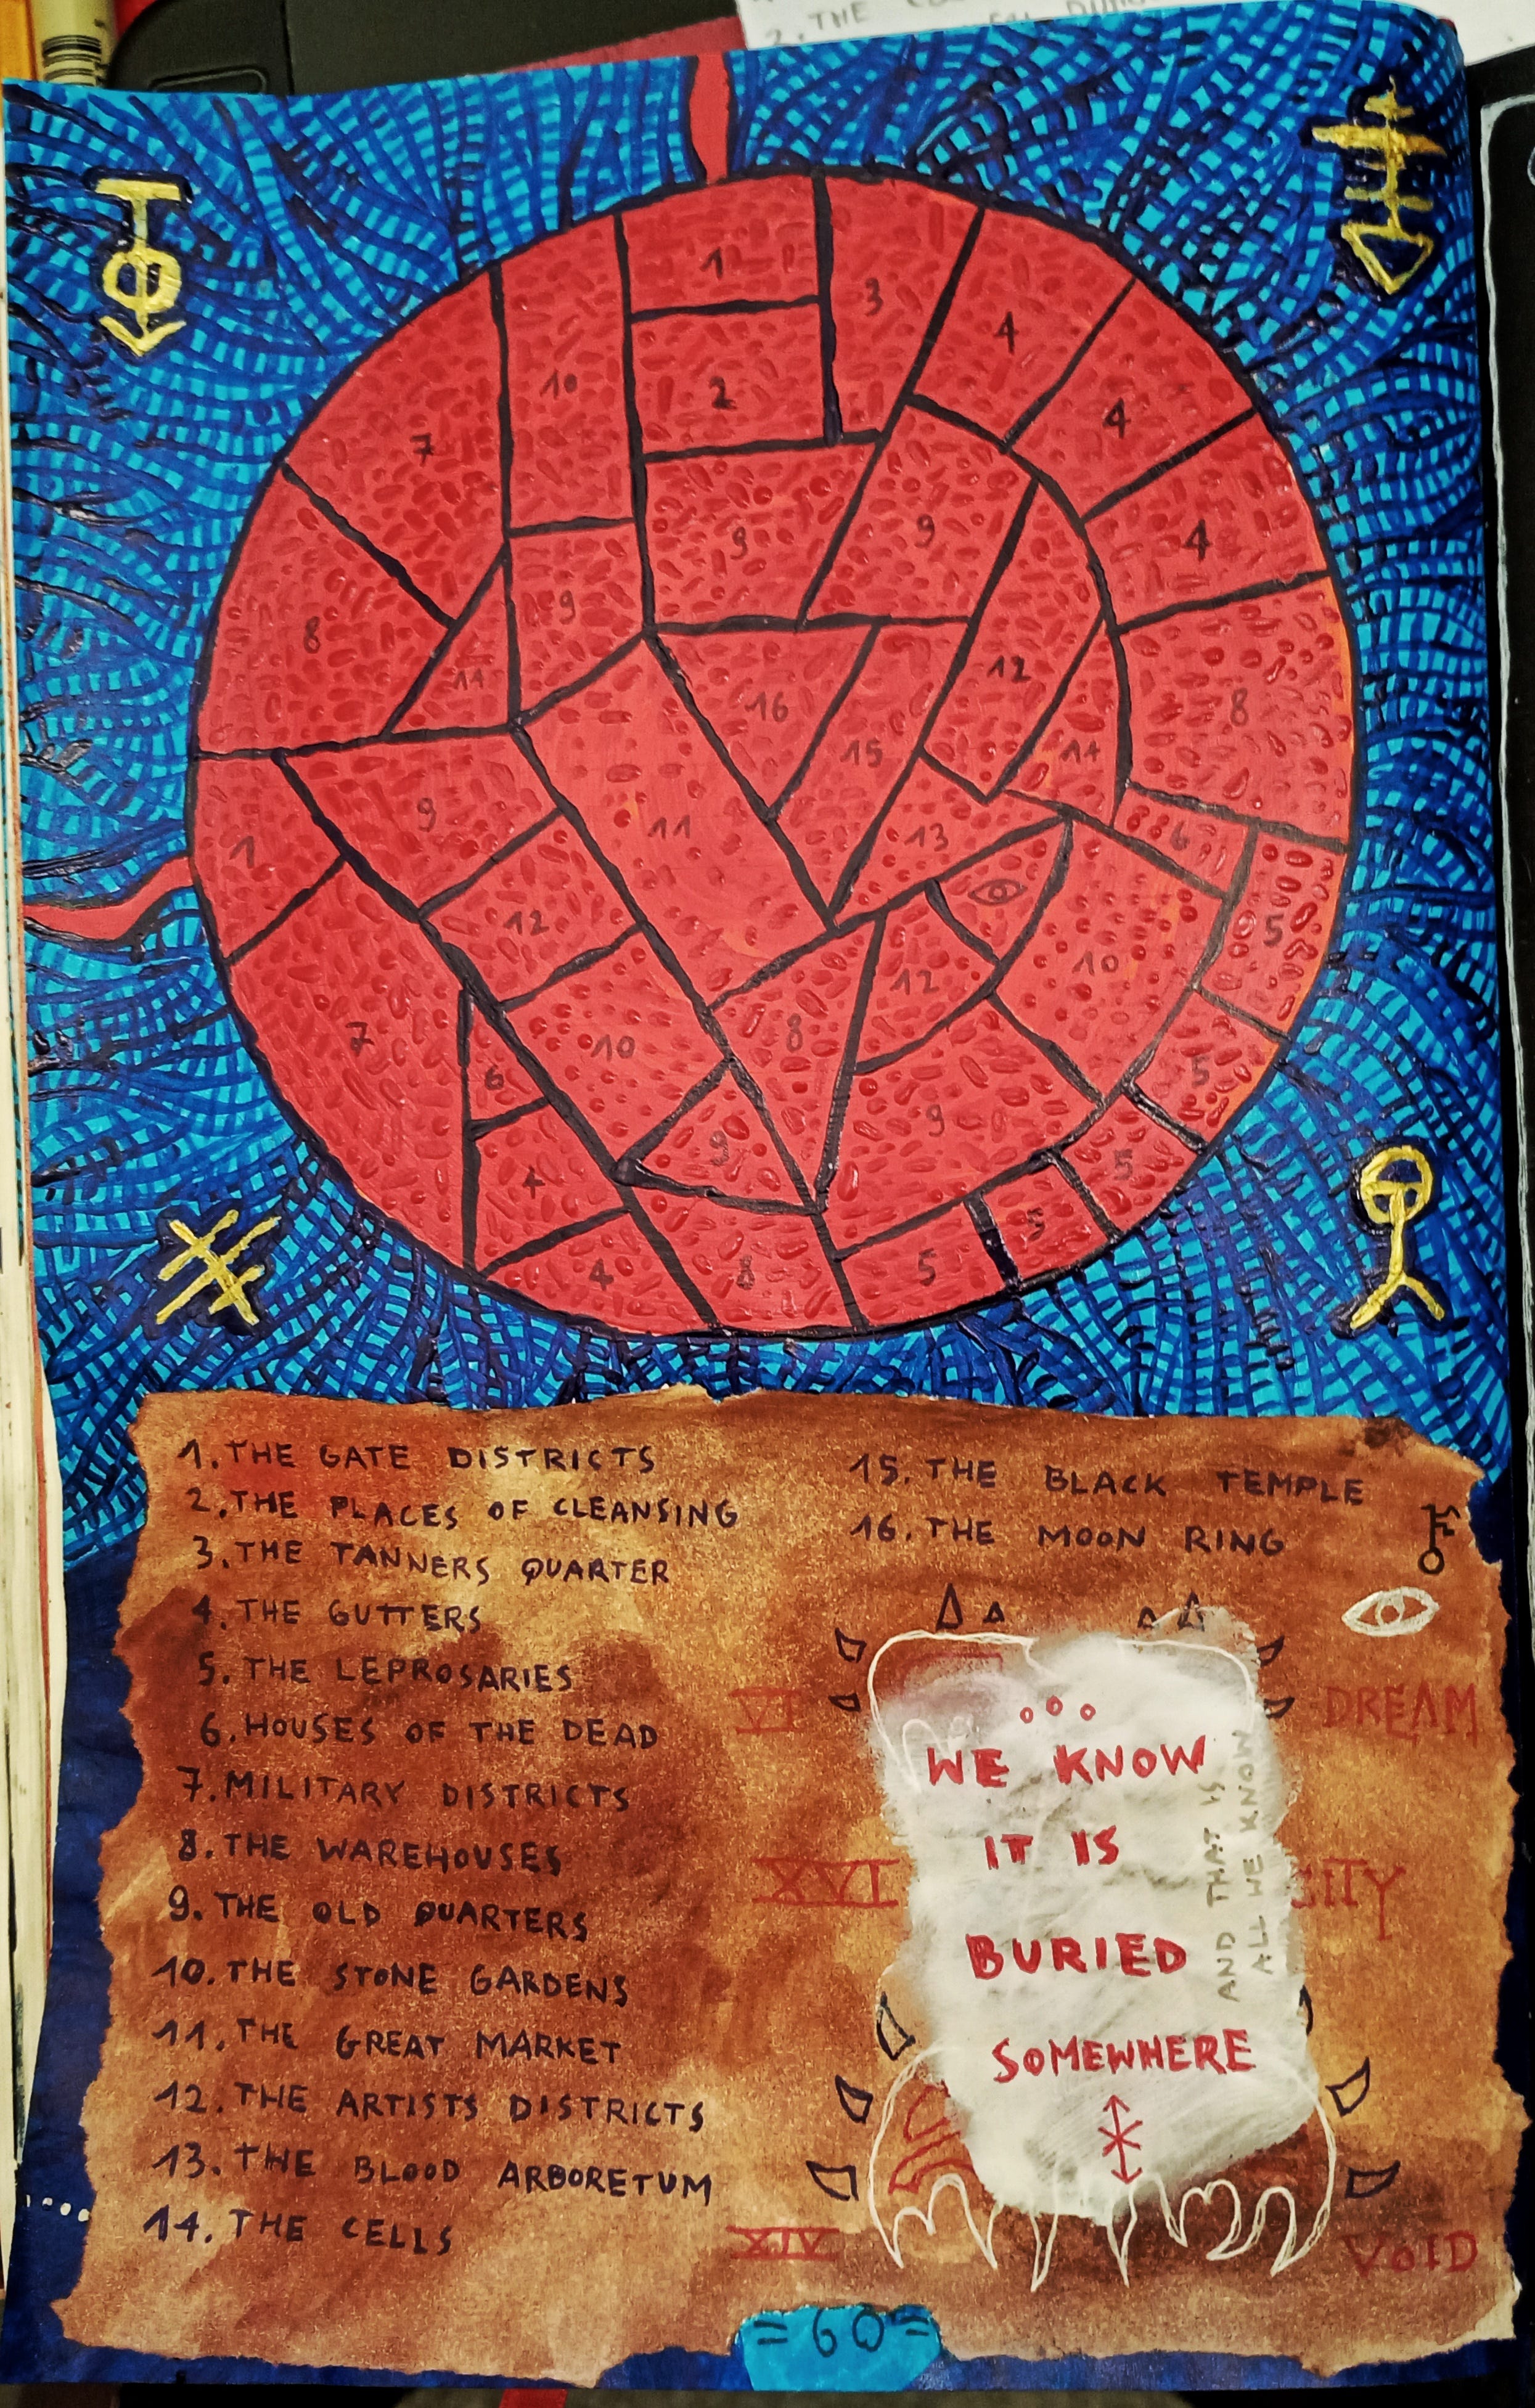 2. THE
1
3
4
10
2
4
7
4
9
9
9
8
12
11
16
8
15
14
11
13
6
9
1
5
12
10
12
8
7
10
5
6
9
9
5
4
5
5
4
8
1. THE GATE DISTRICTS
2. THE PLACES OF CLEANSING
3. THE TANNERS QUARTER
4. THE GUTTERS
5. THE LEPROSARIES
6. HOUSES OF THE DEAD
7. MILITARY DISTRICTS
8. THE WAREHOUSES
9. THE OLD QUARTERS
10. THE STONE GARDENS
11. THE GREAT MARKET
12. THE ARTISTS DISTRICTS
13. THE BLOOD ARBORETUM
14. THE CELLS
15. THE BLACK TEMPLE
16. THE MOON RING
VI
DREAM
XVI
CITY
XIV
VOID
...
WE KNOW
IT IS
BURIED
SOMEWHERE
AND THAT IS
ALL WE KNOW
=60=